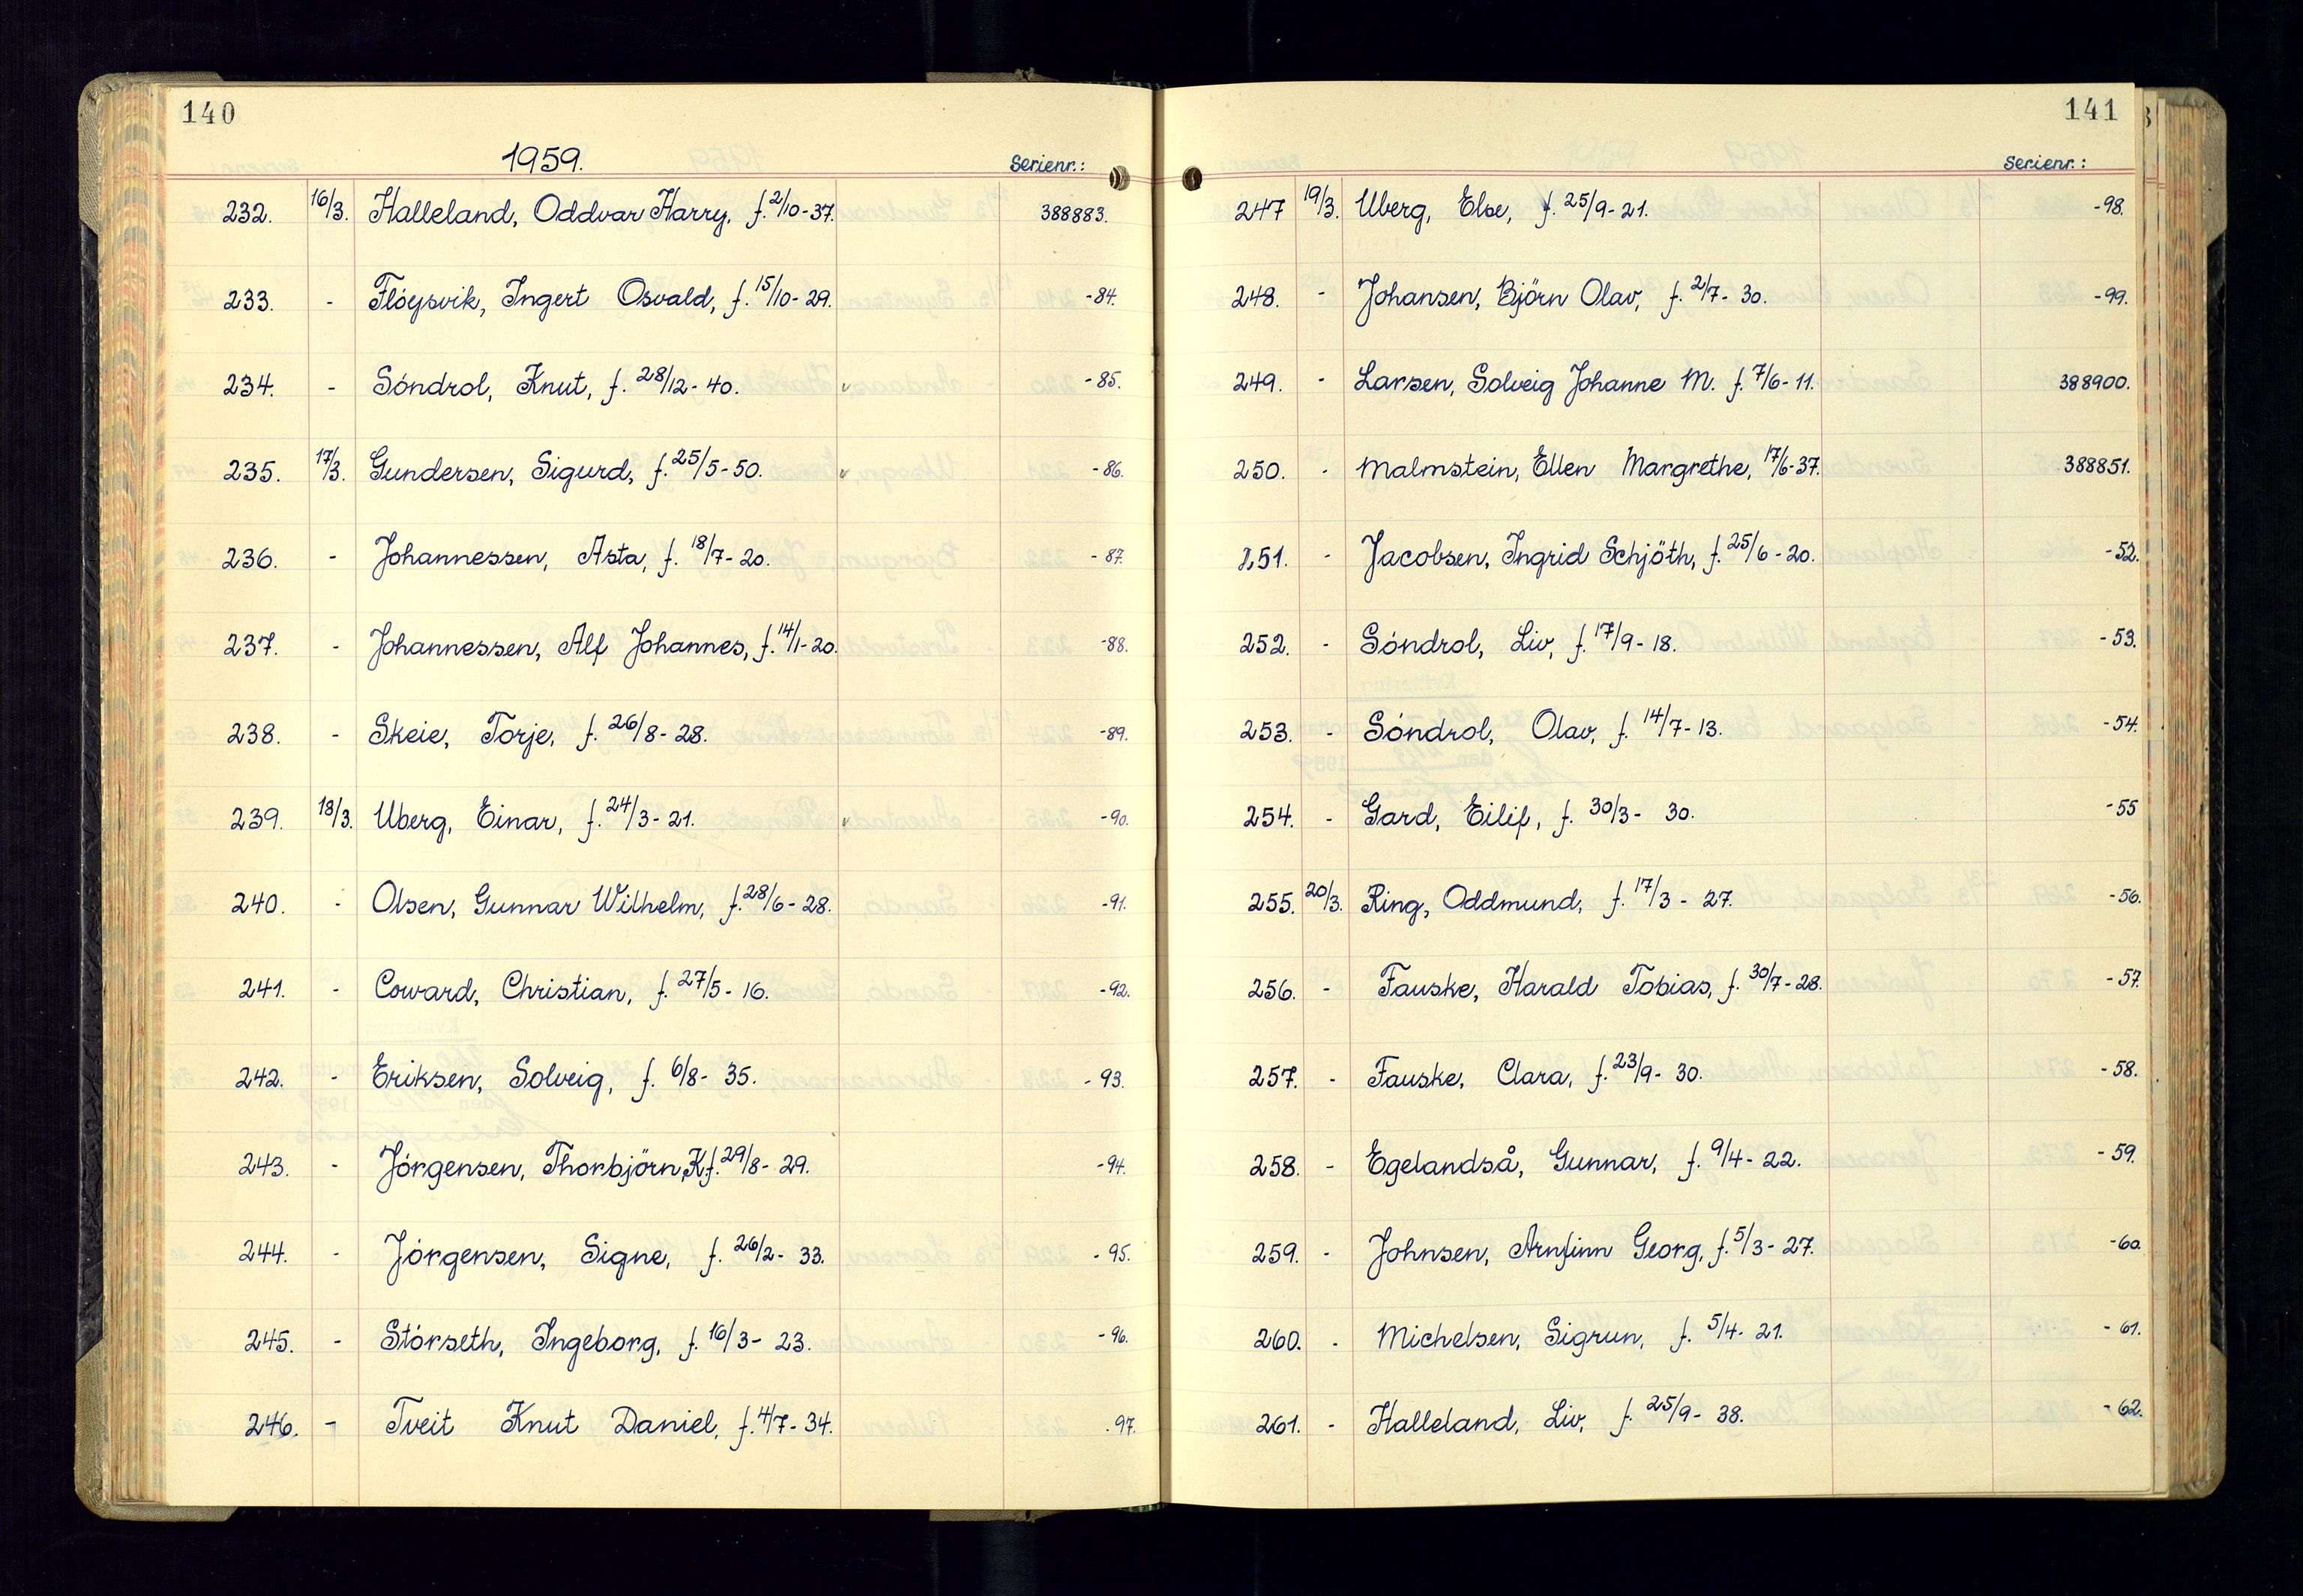 140
1959.
Serienr.:
232. 16/3. Halleland, Oddvar Harry, f. 2/10-37. 388883.
233. - Flóysvik, Ingert Osvald, f. 15/10-29. -84.
234. - Sóndrol, Knut, f. 28/12-40. -85.
235. 17/3. Gundersen, Sigurd, f. 25/5-50. -86.
236. - Johannessen, Asta, f. 18/7-20. -87.
237. - Johannessen, Alf Johannes, f. 14/1-20. -88.
238. - Skeie, Torje, f. 26/8-28. -89.
239. 18/3. Uberg, Einar, f. 24/3-21. -90.
240. - Olsen, Gunnar Wilhelm, f. 28/6-28. -91.
241. - Coward, Christian, f. 27/5-16. -92.
242. - Eriksen, Solveig, f. 6/8-35. -93.
243. - Jórgensen, Thorbjörn,K f. 29/8-29. -94.
244. - Jórgensen, Signe, f. 26/2-33. -95.
245. - Stórseth, Ingeborg, f. 16/3-23. -96.
246. - Tveit Knut Daniel, f. 4/7-34. -97.
141
Serienr.:
247 19/3. Uberg, Else, f. 25/9-21. -98.
248. - Johansen, Björn Olav, f. 2/7-30. -99.
249. - Larsen, Solveig Johanne M. f. 7/6-11. 388900.
250. - Malmstein, Ellen Margrethe, 17/6-37. 388851.
251. - Jacobsen, Ingrid Schjöth, f. 25/6-20. -52.
252. - Sóndrol, Liv, f. 17/9-18. -53.
253. - Sóndrol, Olav, f. 14/7-13. -54.
254. - Gard, Eilif, f. 30/3-30. -55
255. 20/3. Ring, Oddmund, f. 17/3-27. -56.
256. - Fauske, Harald Tobias, f. 30/7-28. -57.
257. - Fauske, Clara, f. 23/9-30. -58.
258. - Egelandså, Gunnar, f. 9/4-22. -59.
259. - Johnsen, Arnfinn Georg, f. 5/3-27. -60.
260. - Michelsen, Sigrun, f. 5/4-21. -61.
261. - Halleland, Liv, f. 25/9-38. -62.